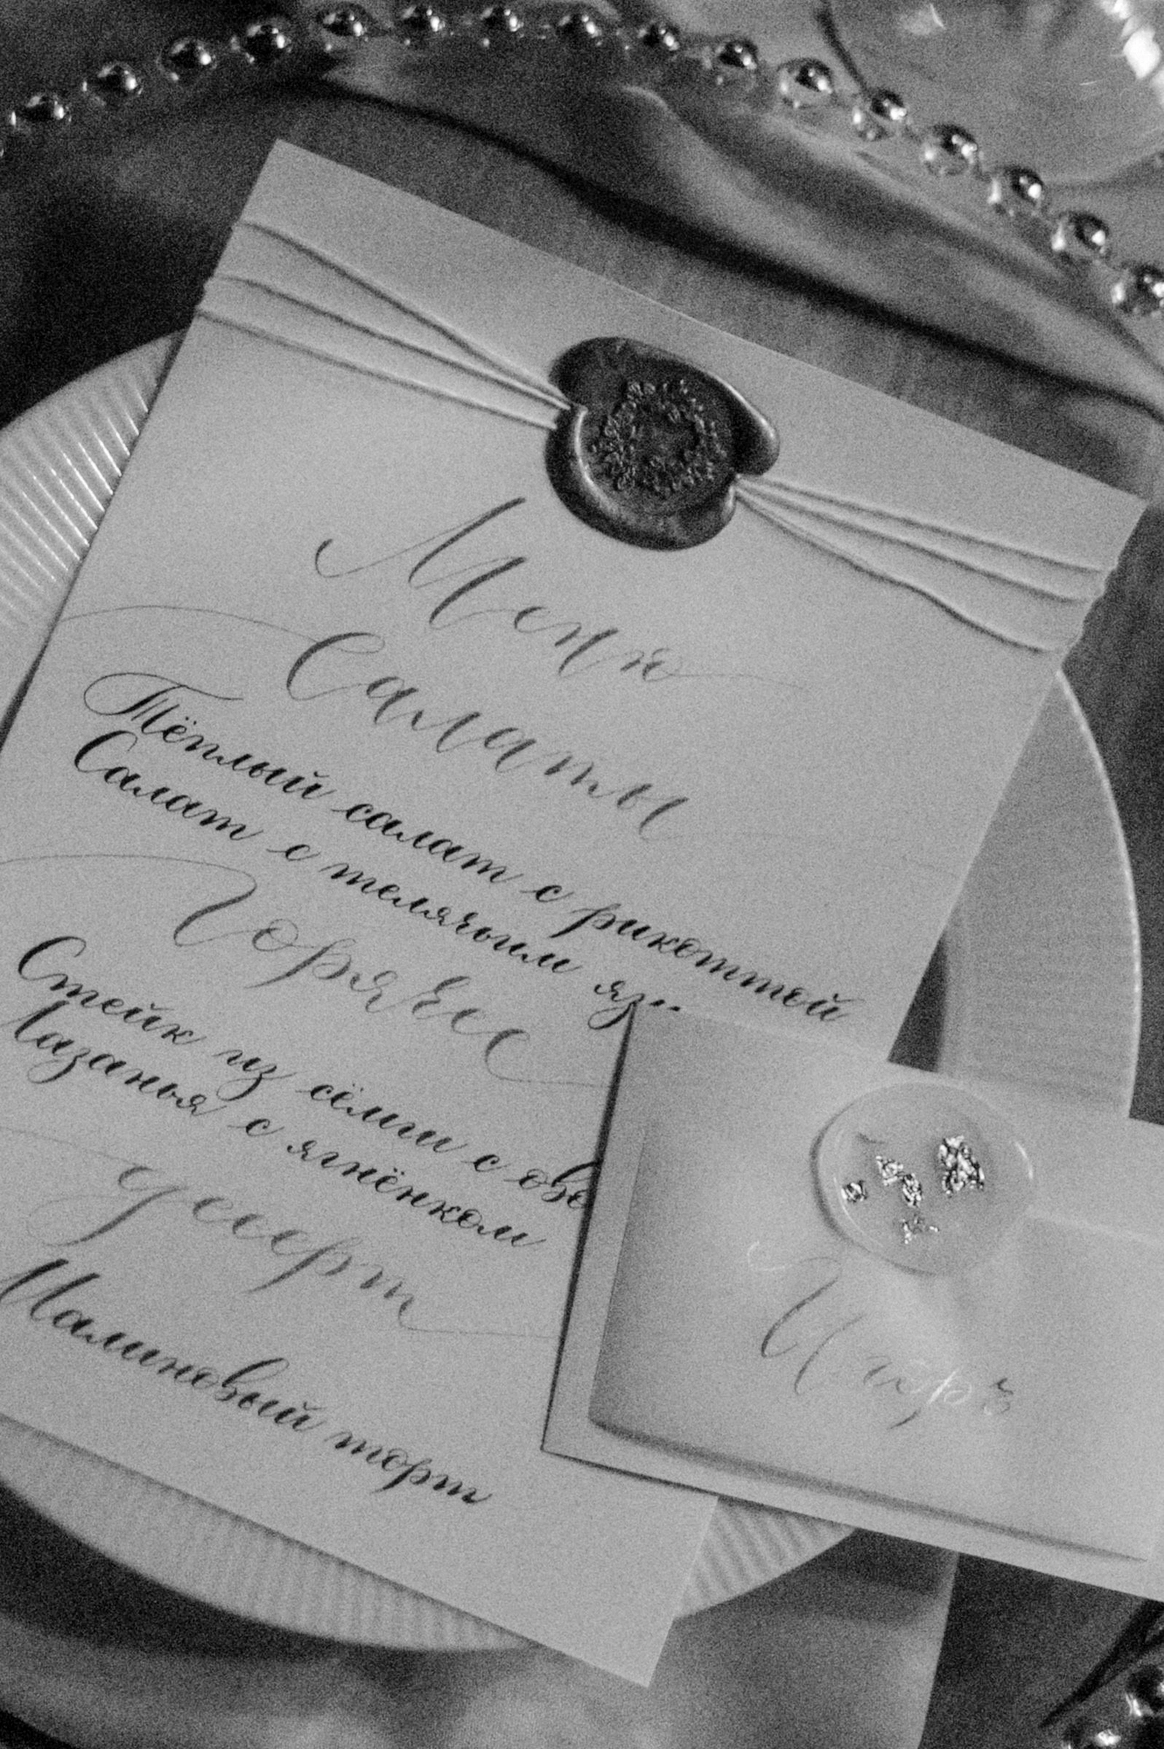 Меню
Салаты
Тёплый салат с рикоттой
Салат с телячьим яз..
Горячее
Стейк из сёмги с ово
Лазанья с ягнёнком
Десерт
Малиновый торт
Игорь